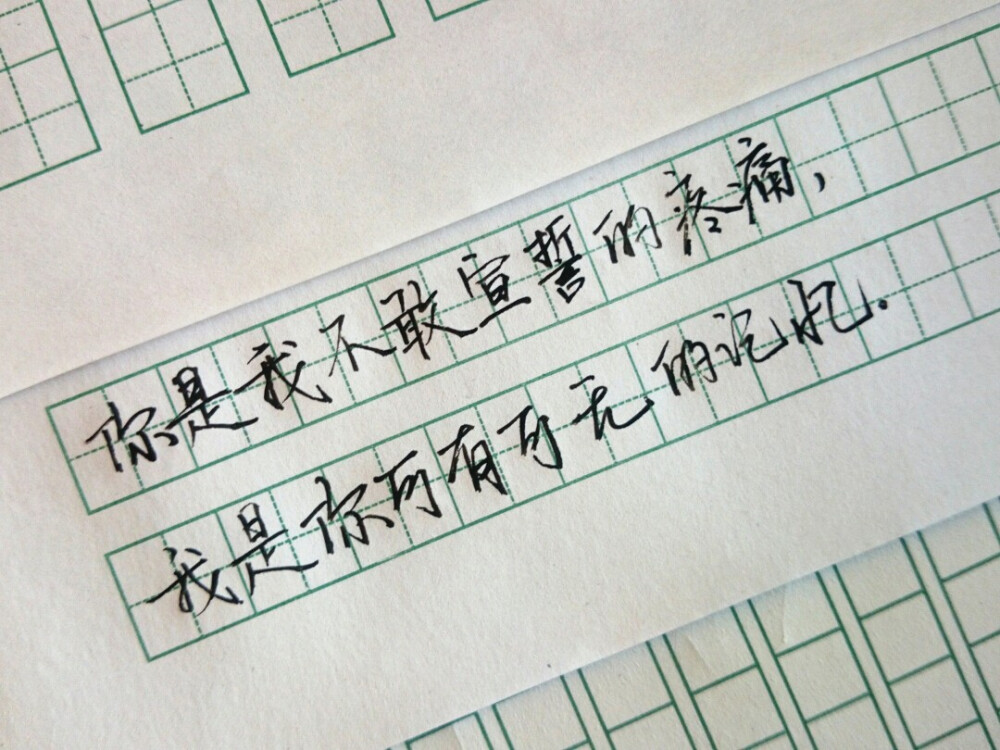 你是我不敢宣誓的疼痛，
我是你可有可无的记忆.